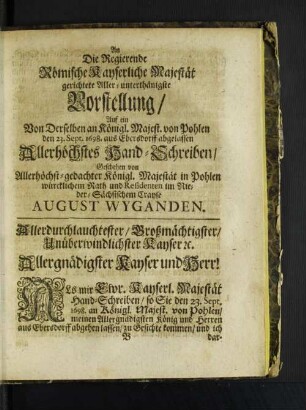 An
Die Regierende
Römische Kayserliche Majestät
gerichtete Aller/unterthänigste
Vorstellung/
Auf ein
Von Derselben an Königl. Majest. von Pohlen
den 23. Sept. 1698. aus Ebersdorff abgelassen
Allerhöchstes Hand/Schreiben/
Geschehen von
Allerhöchst/gedachter Königl. Majestät in Pohlen
würcklichem Rath und Residenten im Nie-
der/Sächsischem Crayse
AUGUST WYGANDEN.
Allerdurchlauchtester/Großmächtigster/
Unüberwindlichster Kayser ꝛc.
Allergnädigster Kayser und Herr!
ALs mir Ewr. Kayserl. Majestät
Hand/Schreiben/ so Sie den 23. Sept.
1698. an Königl. Majest. von Pohlen/
meinen Allergnädigsten König und Herren
aus Ebersdorff abgehen lassen/zu Gesichte kommen/ und ich
B dar-